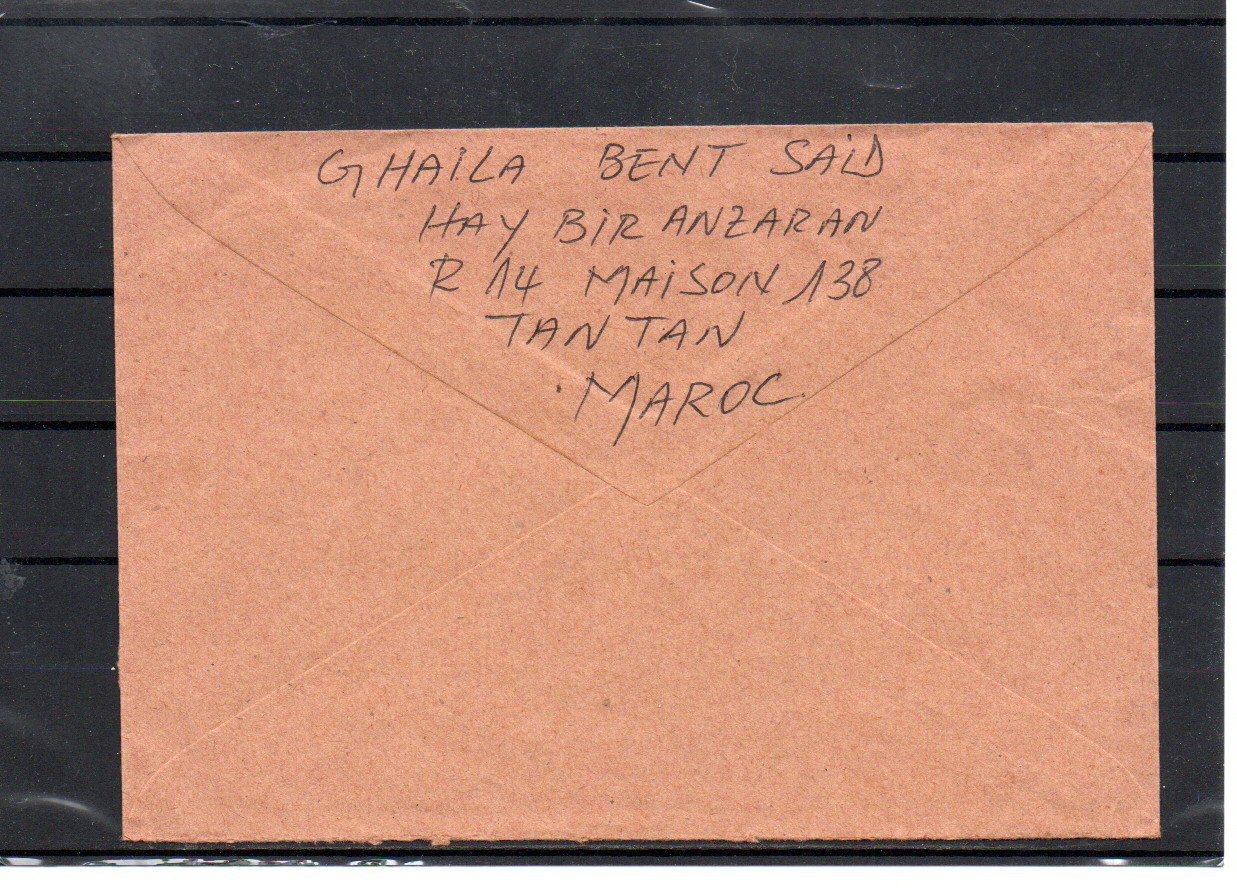 GHAILA BENT SAID
HAY BIR ANZARAN
R 14 MAISON 138
TAN TAN
MAROC